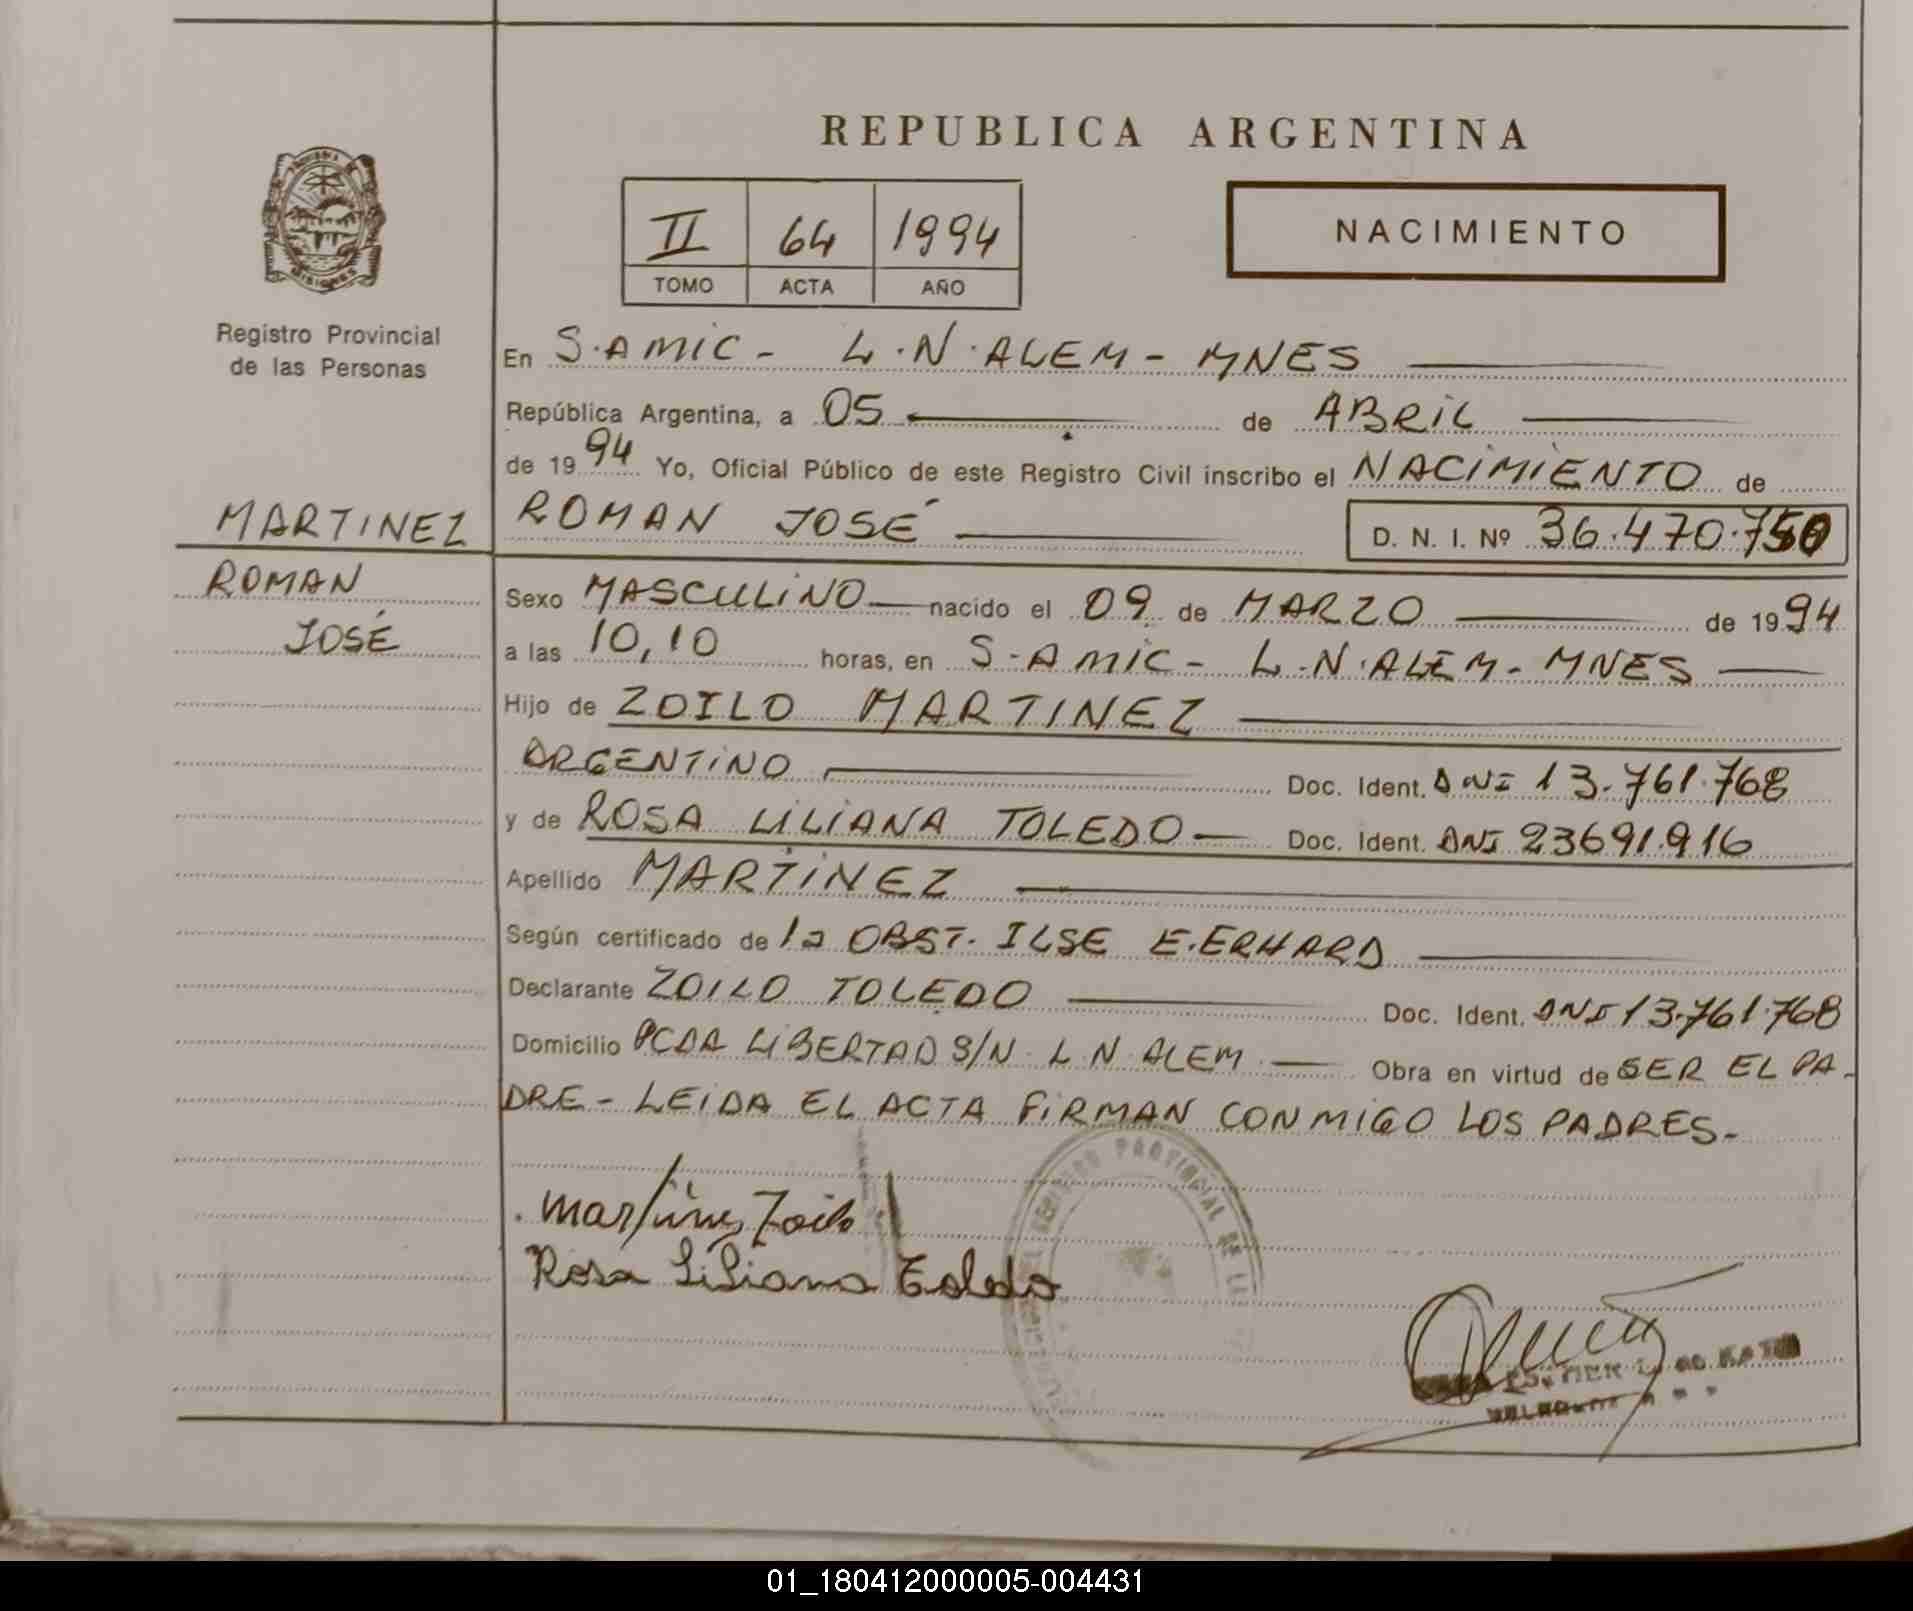 REPUBLICA ARGENTINA
II 64 1994
TOMO ACTA AÑO
NACIMIENTO
PROVINCIA DE
MISIONES
Registro Provincial
de las Personas
MARTINEZ
ROMAN
JOSÉ
En S. AMIC - L. N. ALEM - MNES
República Argentina, a 05 de ABRIL
de 1994 Yo, Oficial Público de este Registro Civil inscribo el NACIMIENTO de
ROMAN JOSÉ D. N. I. Nº 36.470.750
Sexo MASCULINO nacido el 09 de MARZO de 1994
a las 10,10 horas, en S. AMIC - L. N. ALEM - MNES
Hijo de ZOILO MARTINEZ
ARGENTINO Doc. Ident. DNI 13.761.768
y de ROSA LILIANA TOLEDO Doc. Ident. DNI 23691.916
Apellido MARTINEZ
Según certificado de la OBST. ILSE E. ERHARD
Declarante ZOILO TOLEDO Doc. Ident. DNI 13.761.768
Domicilio PCDA LIBERTAD S/N. L. N. ALEM Obra en virtud de SER EL PA-
DRE - LEIDA EL ACTA FIRMAN CONMIGO LOS PADRES.
PROVINCIAL DE
Martinez Zoilo
Rosa Liliana Toledo
01_180412000005-004431